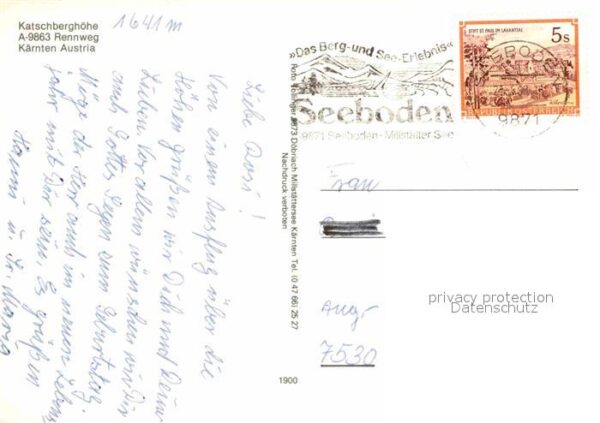 Katschberghöhe
A-9863 Rennweg
Kärnten Austria
1641 m
Liebe Rosi!
Von einem Ausflug über die
Höhen grüßen wir Dich und Deine
Lieben. Vor allem wünschen wir Dir
auch Gottes Segen zum Geburtstag.
Möge der Herr auch im neuen Lebens-
jahr mit Dir sein. Es grüßen
Hanni u. Sr. Maria
Nachdruck verboten
9873 Döbriach Millstättersee Kärnten Tel. (0 47 66) 25 27
1900
»Das Berg- und See-Erlebnis«
Seeboden
9871 Seeboden - Millstätter See
STIFT ST. PAUL IM LAVANTTAL
5s
REPUBLIK ÖSTERREICH
SEEBODEN
9871
Frau
7530
privacy protection
Datenschutz